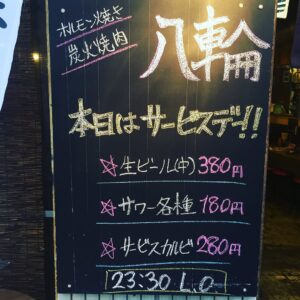 ホルモン焼き
炭火焼肉
八輪
本日はサービスデー!!
☆生ビール(中)380円
☆サワー各種 180円
☆サービスカルビ 280円
23:30 L.O